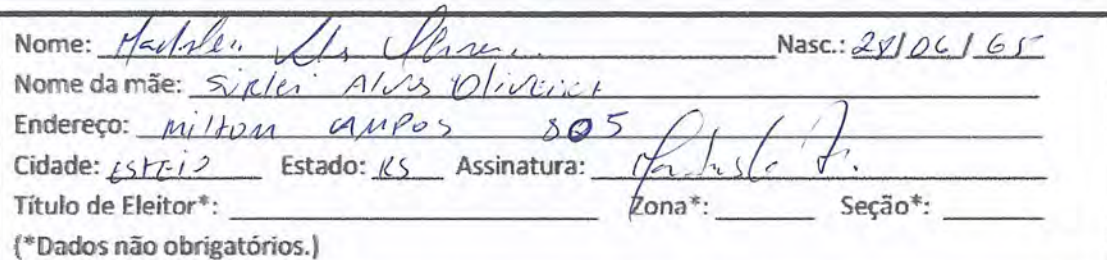 Nome: Nasc.: 28/06/65
Nome da mãe: Sirlei Alves Oliveira
Endereço: Milton Campos 805
Cidade: ESTEIO Estado: RS Assinatura:
Título de Eleitor*: Zona*: Seção*:
(*Dados não obrigatórios.)